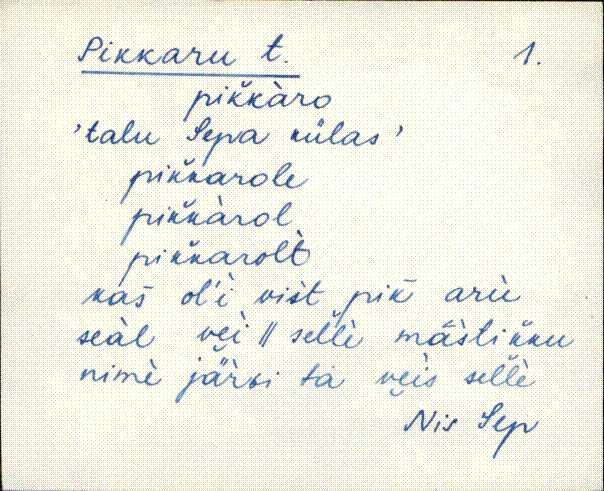 Pikkaru t. 1.
pik̆kàro
'talu Sepa külas'
pik̆karole
pik̆kàrol
pik̆karolt̀
kas̆ ol'ì vist̀ pik̆ arù
seàl vei̯ || sel̆lè mä̆s̀tik̆ku
nimè jä̆rvi tà vei̯s sel̆lè
Nis Sep